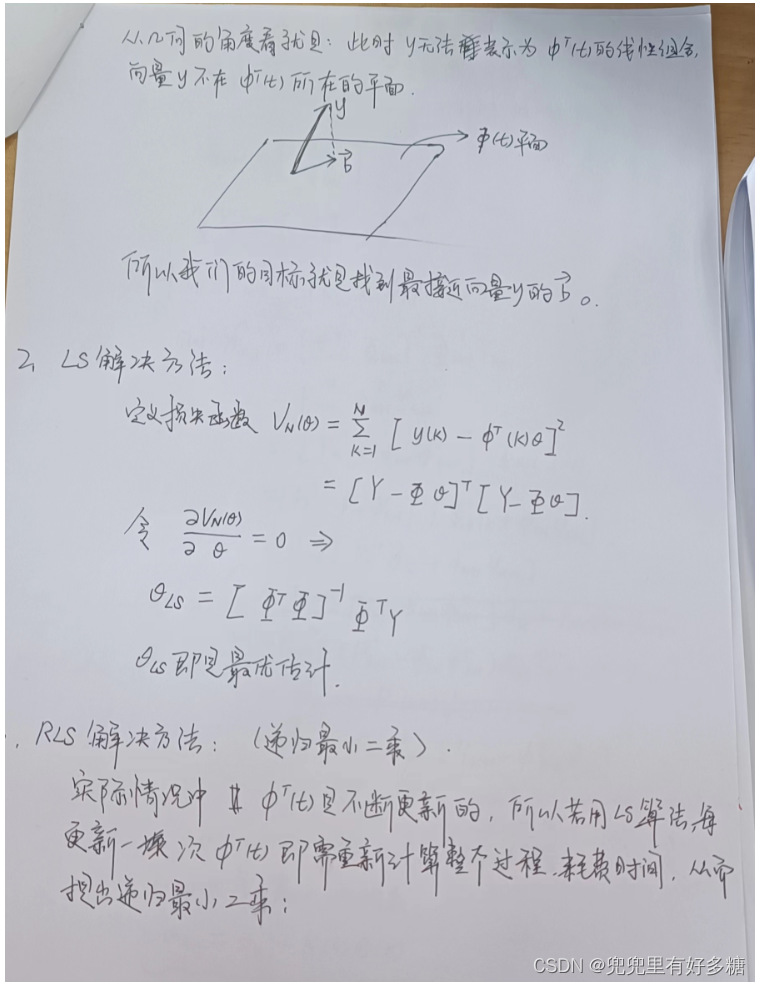 从几何的角度看就是：此时 y无法表示为 φᵀ(t)的线性组合，
向量y不在 φᵀ(t)所在的平面．
y
b⃗
Φ(t)平面
所以我们的目标就是找到最接近向量y的b⃗。
2、LS解决方法：
定义损失函数 V_N(θ) = ∑_{k=1}^{N} [y(k) − φᵀ(k)θ]²
= [Y − Φθ]ᵀ[Y − Φθ].
令 ∂V_N(θ)/∂θ = 0 ⇒
θ_LS = [ΦᵀΦ]⁻¹ΦᵀY
θ_LS即是最优估计．
. RLS解决方法：（递归最小二乘）．
实际情况中 φᵀ(t)是不断更新的，所以若用LS算法，每
更新一次 φᵀ(t)即需重新计算整个过程．耗费时间，从而
提出递归最小二乘：
CSDN @兜兜里有好多糖